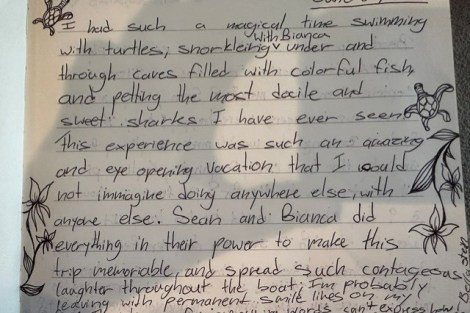 I had such a magical time swimming
with turtles, snorkleing with Bianca under and
through caves filled with colorful fish,
and petting the most docile and
sweet sharks I have ever seen!
This experience was such an amazing
and eye opening vacation that I could
not immagine doing anywhere else, with
anyone else. Sean and Bianca did
everything in their power to make this
trip memorable, and spread such contageous
laughter throughout the boat; I'm probably
leaving with permanent smile lines on my
words can't express how